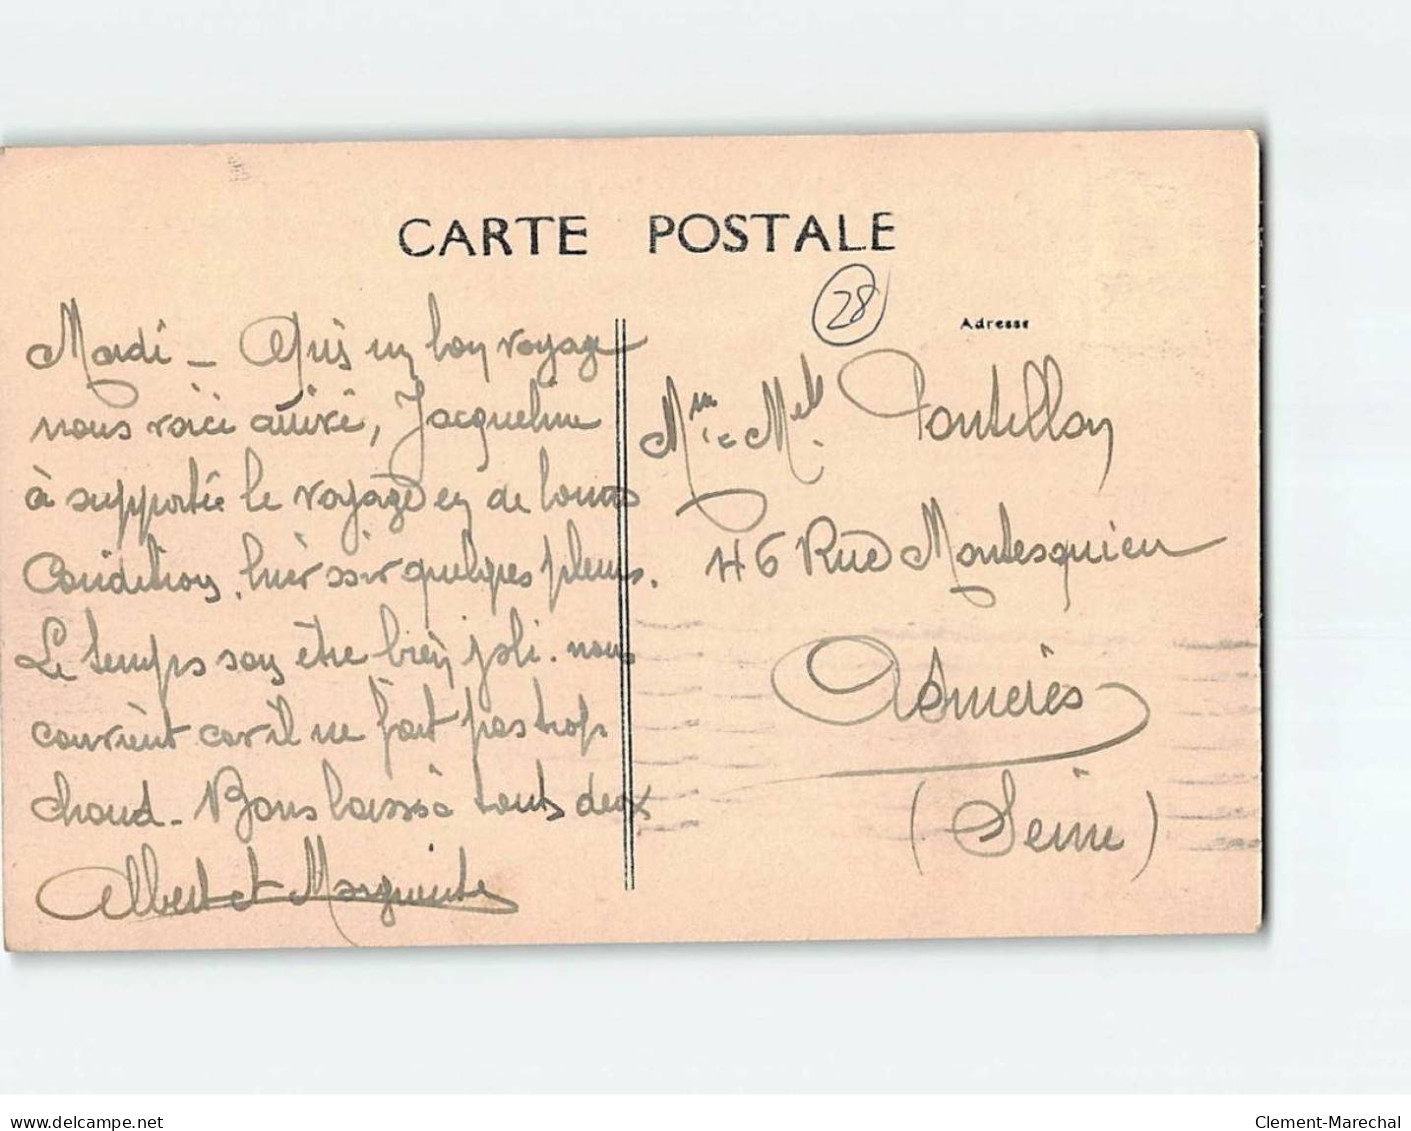 CARTE POSTALE
28
Adresse
Mardi - Après un bon voyage
nous voici arrivé, Jacqueline
à supportée le voyage en de bonnes
Condition, hier soir quelques pleurs.
Le temps son être bien joli. nous
couvrent car il ne fait pas trop
chaud - Bons baisés à touts deux
Albert et Marguerite
Mme Melle Pontillon
46 Rue Montesquieu
Asnieres
(Seine)
www.delcampe.net
Clement-Marechal